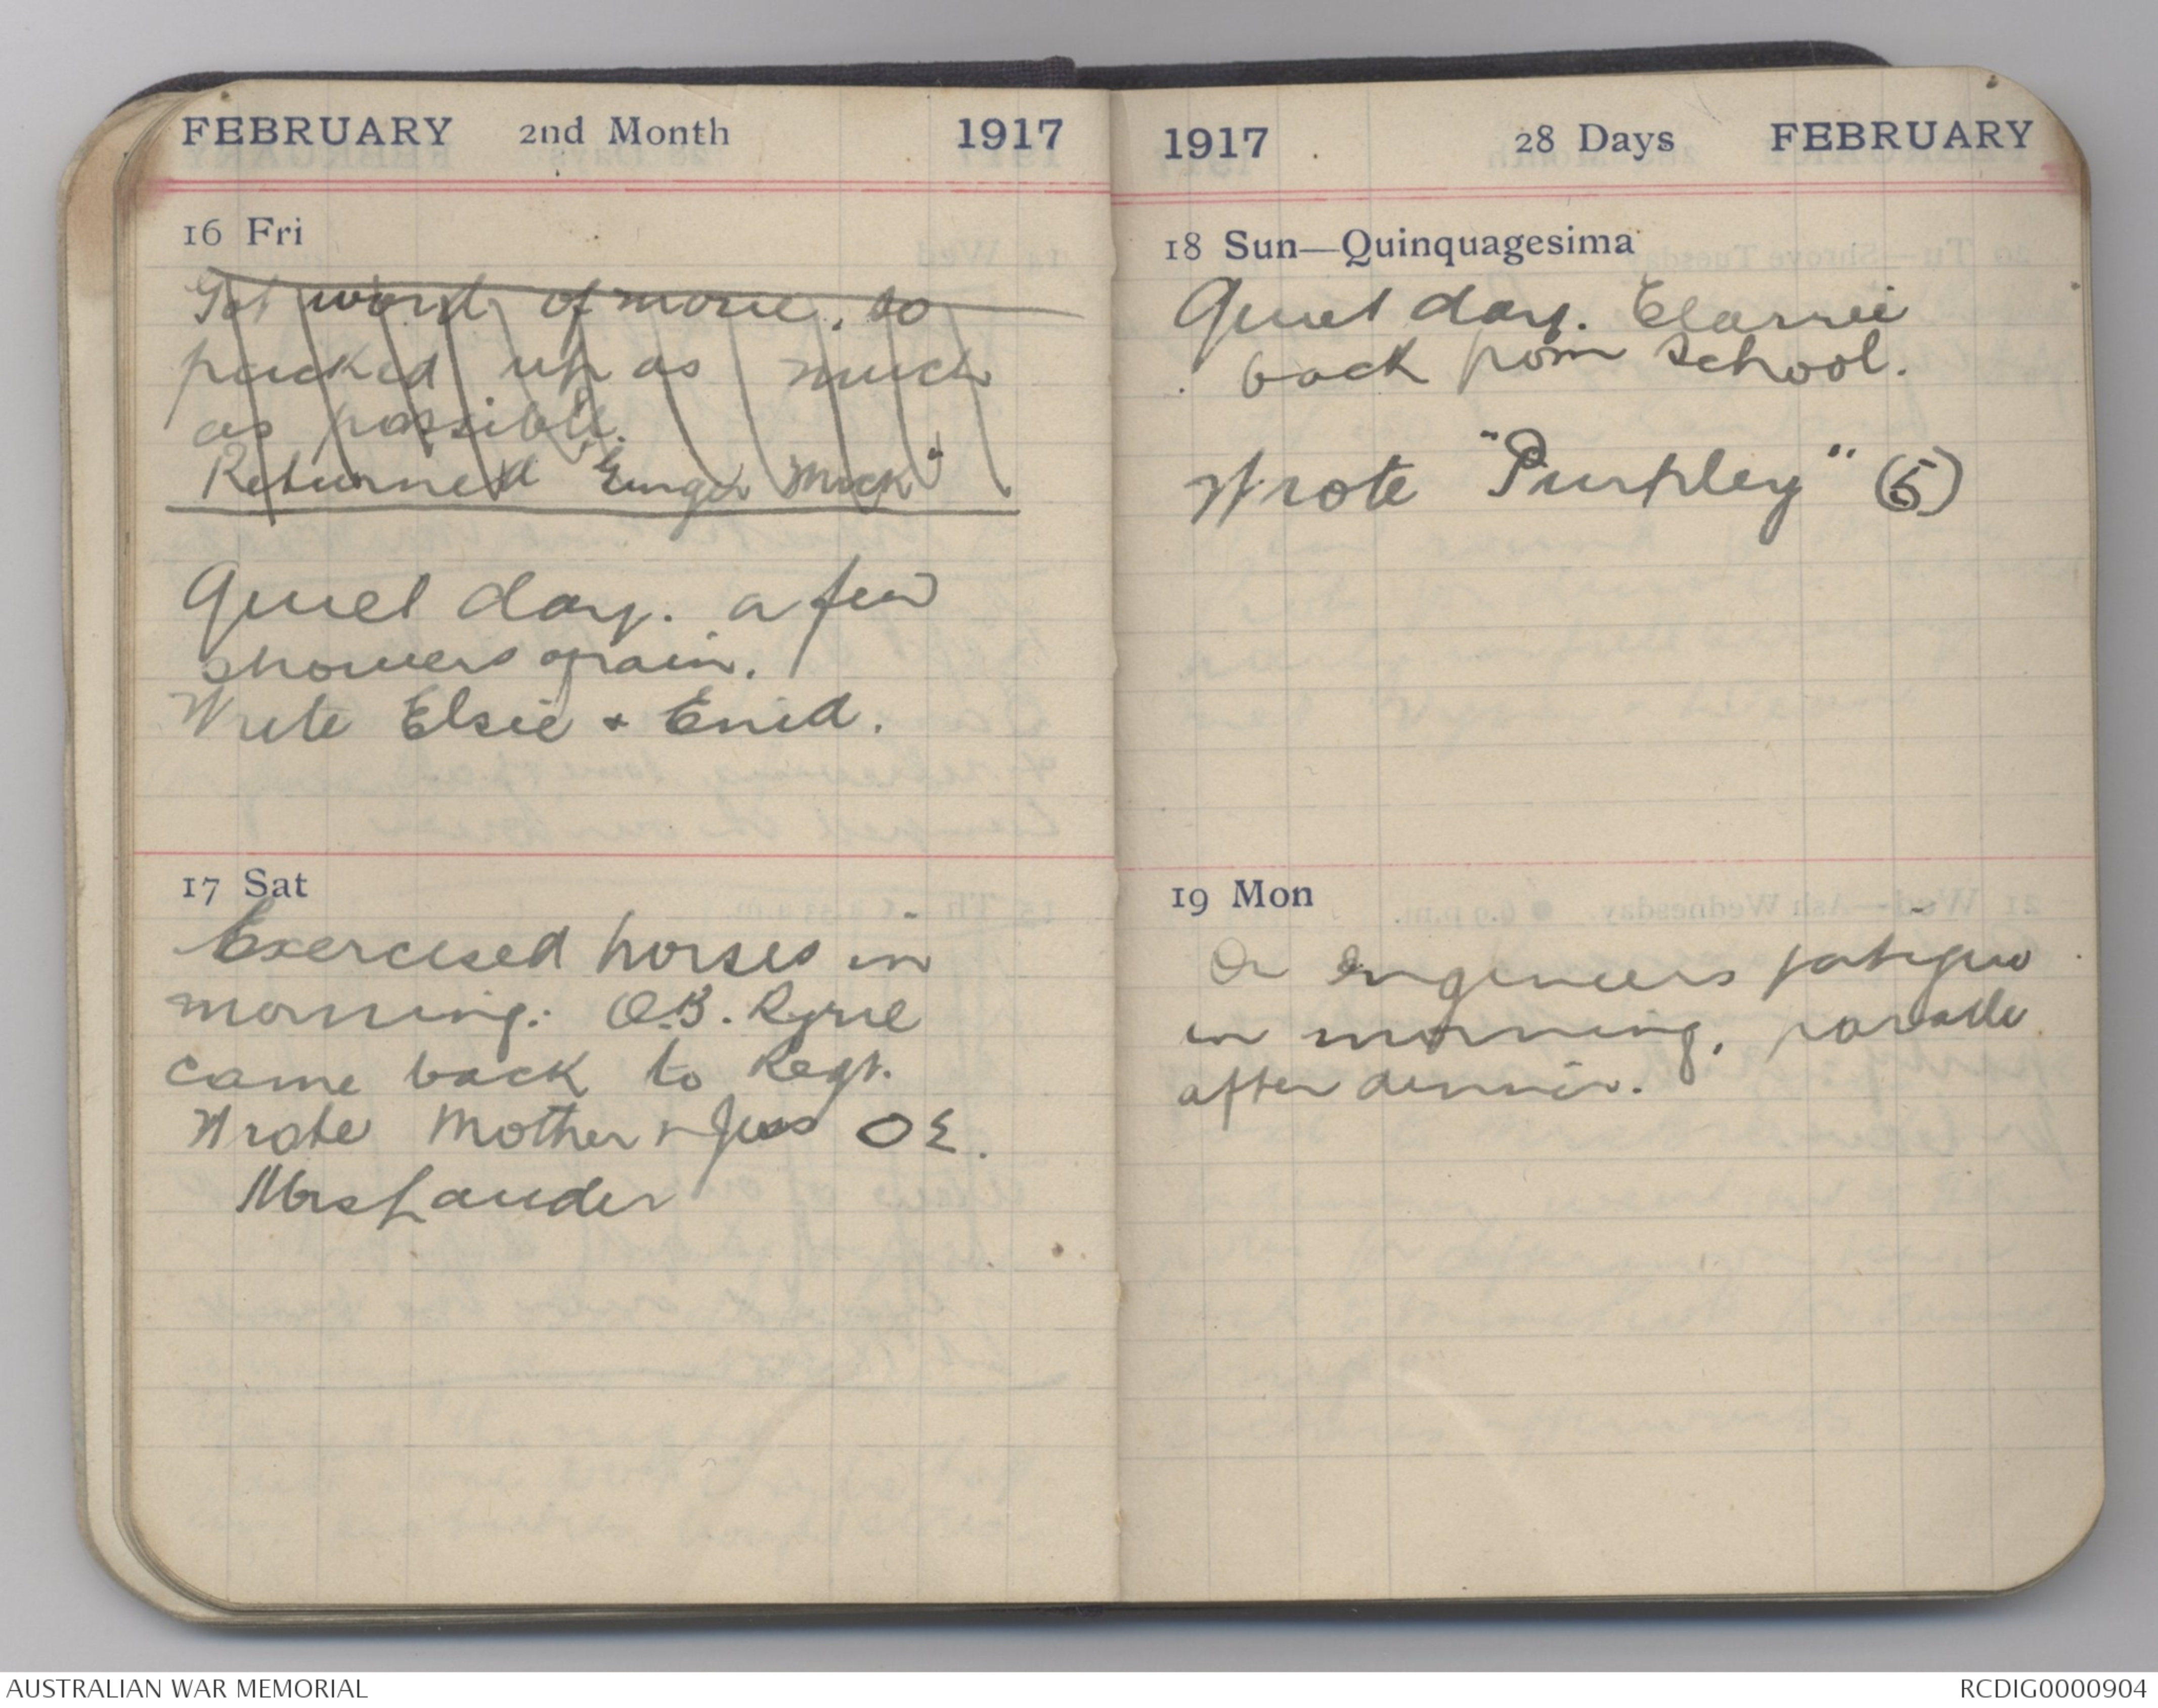 FEBRUARY 2nd Month 1917
16 Fri
Got word of move, so
packed up as much
as possible.
Returned "Ginger Mick"
Quiet day. a few
showers of rain.
Wrote Elsie + Enid.
17 Sat
Exercised horses in
morning. O.B. Ryrie
came back to Regt.
Wrote Mother + Jess OE.
Mrs Lauder
1917 28 Days FEBRUARY
18 Sun—Quinquagesima
Quiet day. Clarrie
back from School.
Wrote "Purpley" (5)
19 Mon
On Engineers fatigue
in morning, parade
after dinner.
AUSTRALIAN WAR MEMORIAL
RCDIG0000904